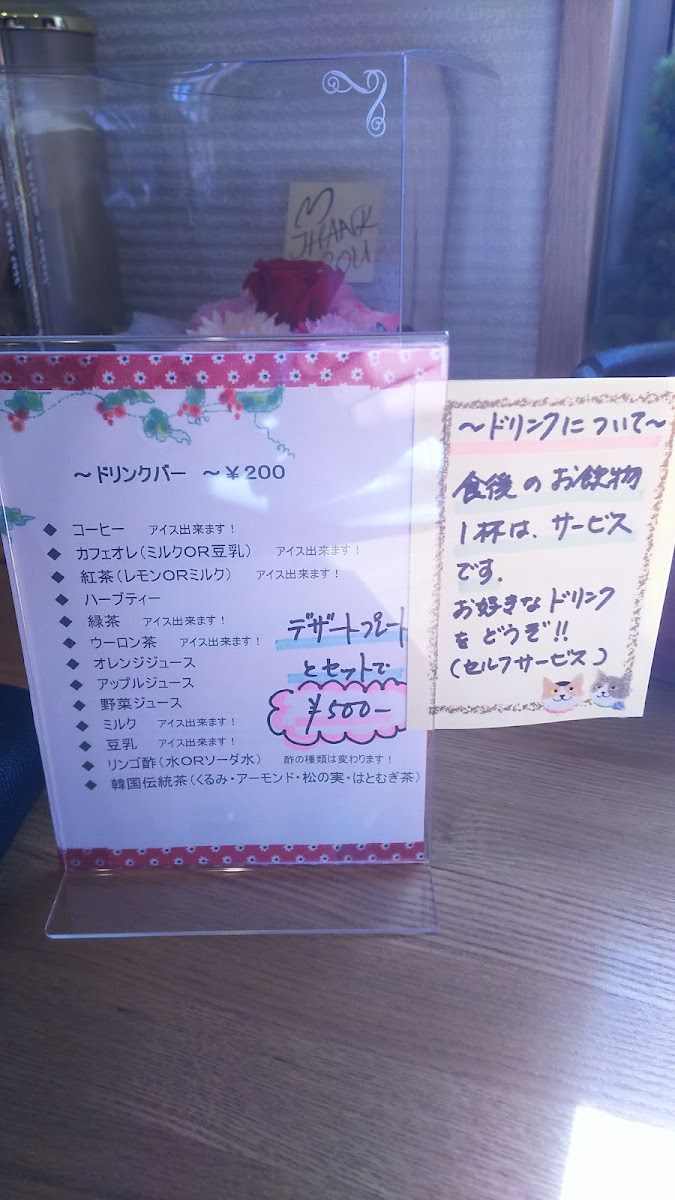 THANK
YOU
～ドリンクバー　～￥200
◆ コーヒー　アイス出来ます！
◆ カフェオレ（ミルクOR豆乳）　アイス出来ます！
◆ 紅茶（レモンORミルク）　アイス出来ます！
◆ ハーブティー
◆ 緑茶　アイス出来ます！
◆ ウーロン茶　アイス出来ます！
◆ オレンジジュース
◆ アップルジュース
◆ 野菜ジュース
◆ ミルク　アイス出来ます！
◆ 豆乳　アイス出来ます！
◆ リンゴ酢（水ORソーダ水）　酢の種類は変わります！
◆ 韓国伝統茶（くるみ・アーモンド・松の実・はとむぎ茶）
デザートプレート
とセットで
¥500-
～ドリンクについて～
食後のお飲物
1杯は、サービス
です.
お好きなドリンク
をどうぞ!!
(セルフサービス)